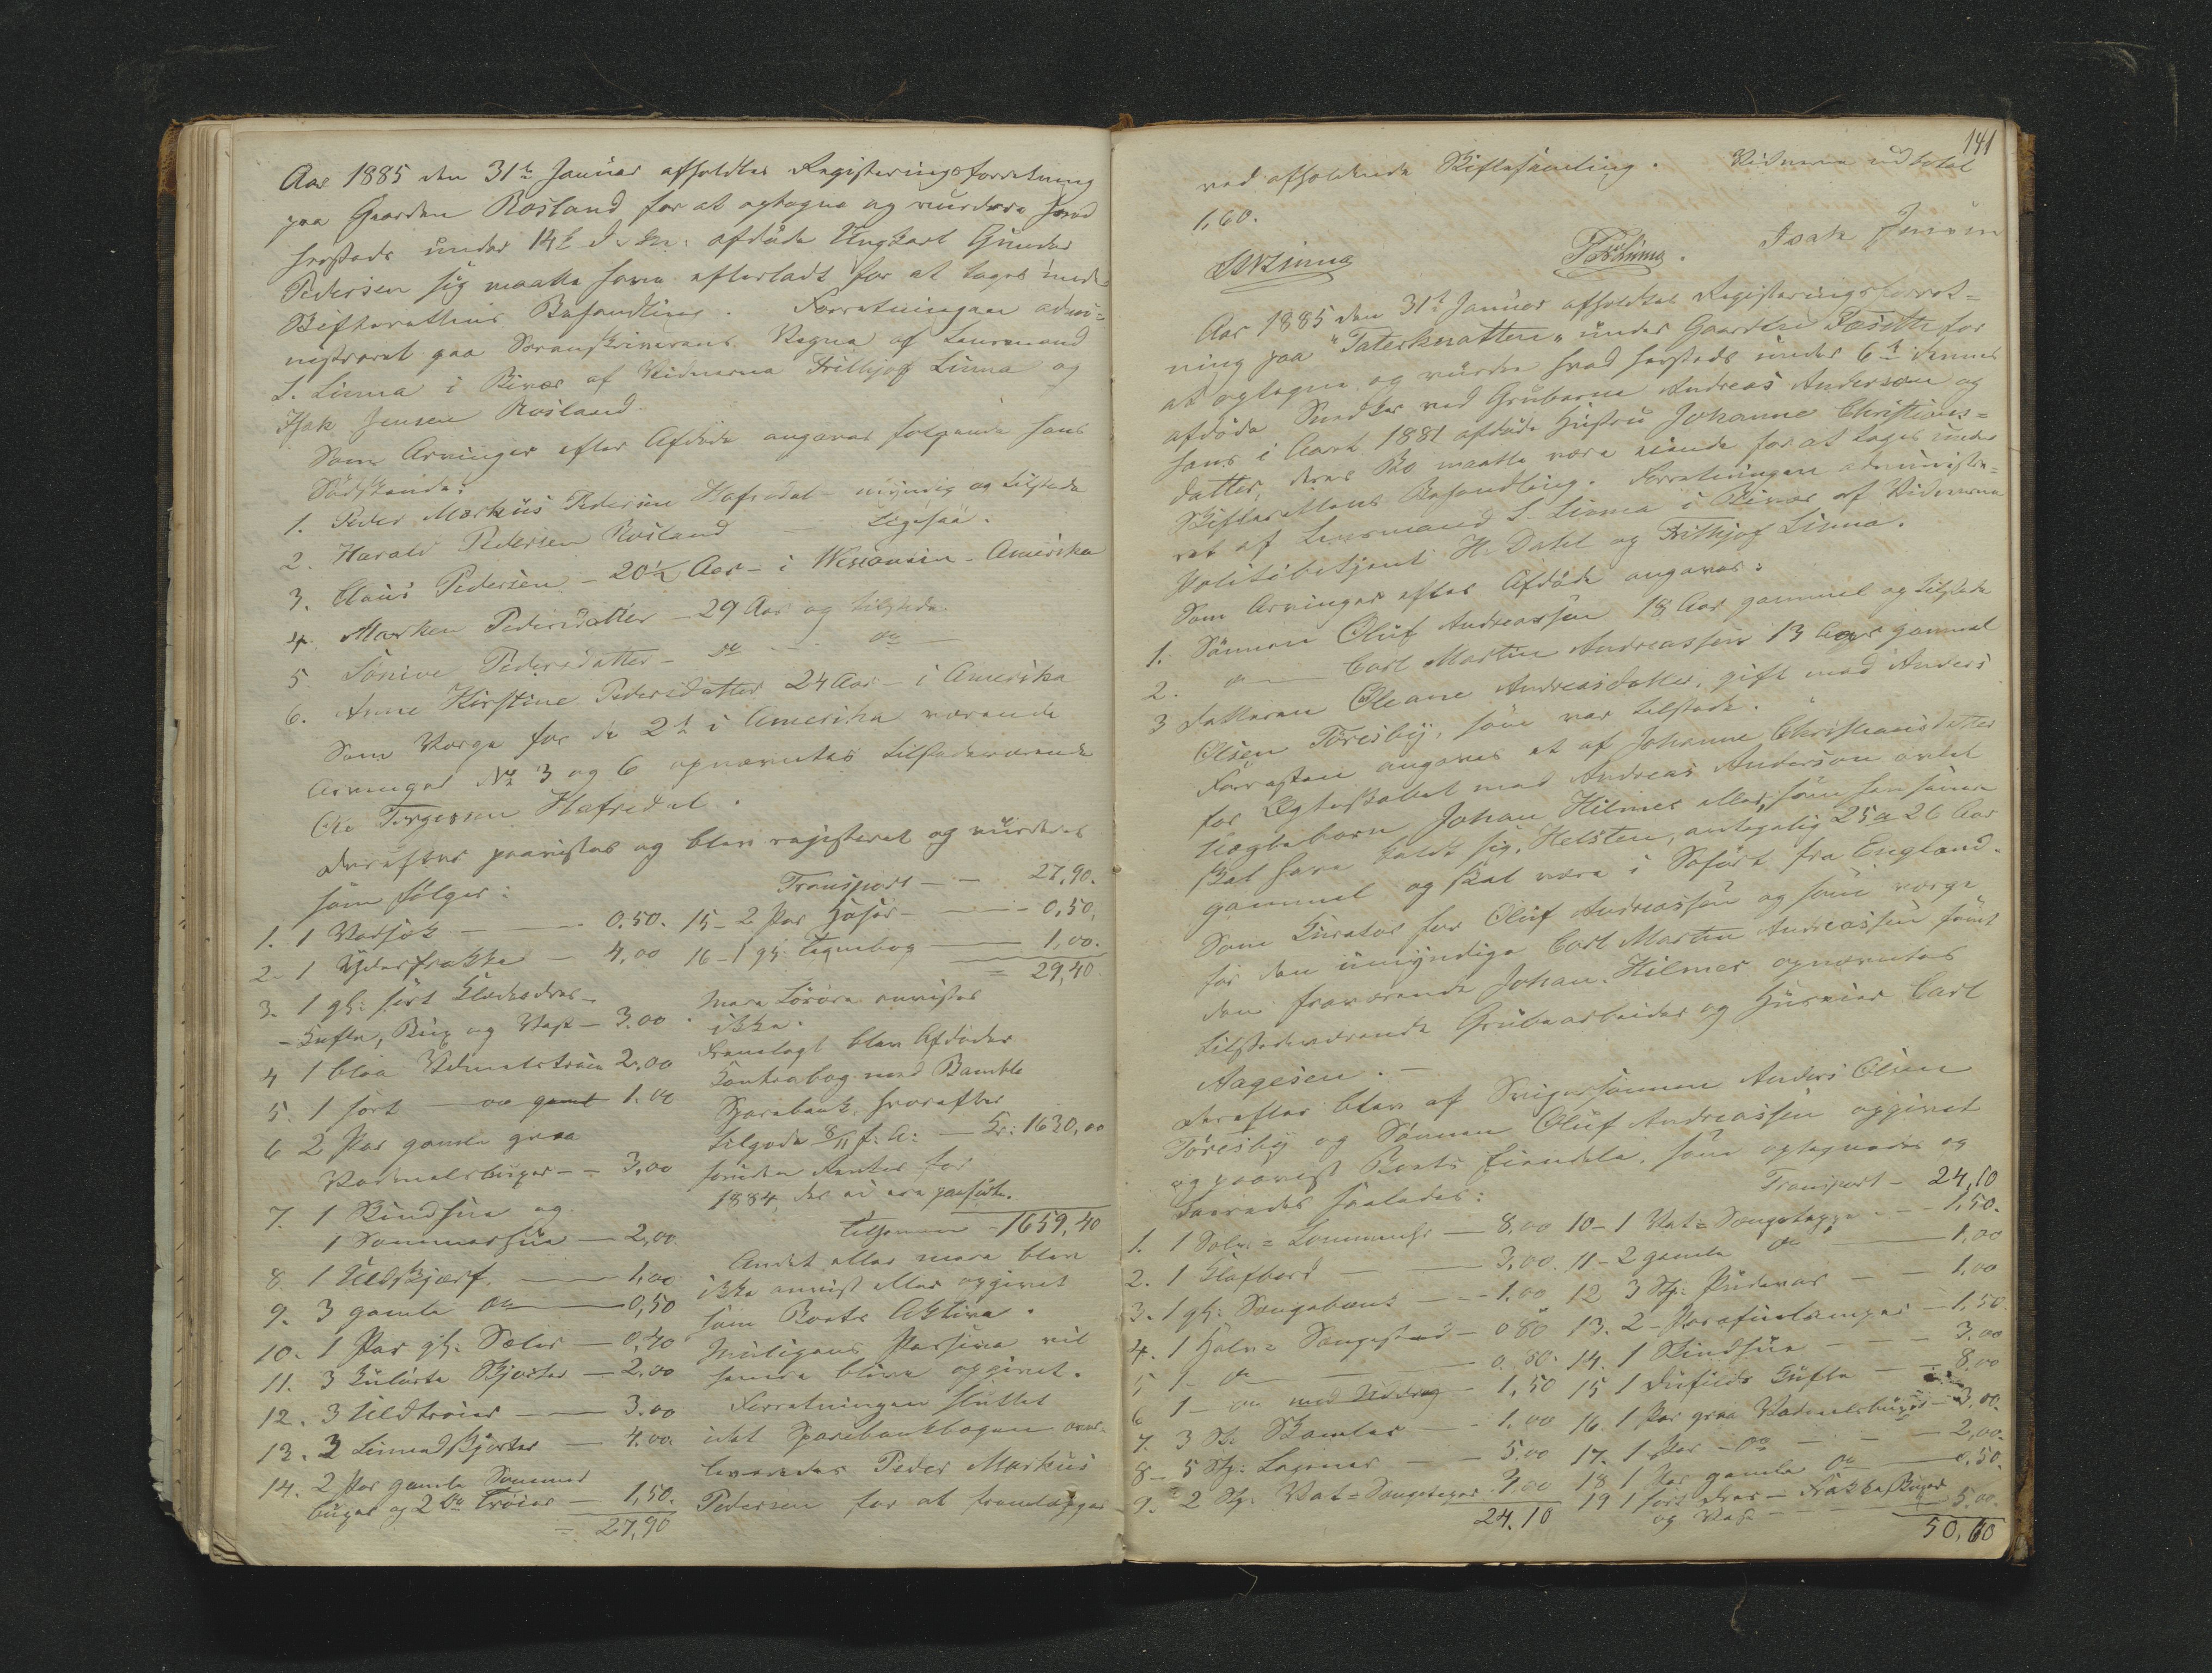 Aar 1885 den 31te Januar afholdtes Registreringsforretning
paa Gaarden Rosland for at optegne og vurdere hvad
hersteds under 14de d. M. afdøde Ungkarl Gunder
Pedersen sig maatte have efterladt for at tages under
Skifterettens Behandling. Forretningen admi-
nistreret paa Sorenskriverens Vegne af Lensmand
S. Linna i Bivær af Vidnerne Frithjof Linna og
Isak Jensen Rosland.
Som Arvinger efter Afdøde angaves følgende hans
Sødskende:
1. Peder Markus Pedersen Hafredal - myndig og tilstede
2. Harald Pedersen Rosland - ligesaa.
3. Claus Pedersen - 20½ Aar - i Wisconsin - Amerika
4. Marken Pedersdatter - 29 Aar og tilstede
5 Sørine Pedersdatter - do - do -
6. Anne Kirstine Pedersdatter 24 Aar - i Amerika
Som Værge for de 2de i Amerika værende
Arvinger No 3 og 6 opnævntes tilstedeværende
Ole Torgersen Hafredal.
Derefter paavistes og blev registreret og vurderet
som følger:
1. 1 Vadsæk - 0.50.
2. 1 Yderfrakke - 4,00
3. 1 gl: sort Klædesdres-
- Kufte, Bux og Vest - 3.00
4 1 blaa Vadmelstrøie 2,00
5. 1 sort - do gaml 1.00
6 2 Par gamle graa
Vadmelsbuxer - - 3,00
7. 1 Skindhue og
1 Sommerhue - 2,00.
8 1 Uldskjærf. - 1,00
9. 3 gamle do - 0,50
10. 1 Par gl: Sæler - 0,40
11. 3 kulørte Skjorter - 2.00
12. 3 Uldtrøier - 3.00
13. 3 Linnedskjorter - 4.00.
14. 2 Par gamle Sommer
buxer og 2 do Trøier - 1,50.
= 27,90
Transport - - 27,90.
15 - 2 Par Hoser - 0,50,
16 - 1 gl: Tegnebog - 1,00.
= 29,40.
Mere Løsøre anvistes
ikke.
Fremlagt blev Afdødes
Contrabog med Bamble
Sparebank, hvorefter
tilgode 8/11 f: A: - Kr: 1630,00
foruden Renter for
1884, der ei ere paaførte.
Tilsammen - 1659,40
Andet eller mere blev
ikke anvist eller opgivet
som Boets Aktiva.
Muligens Passiva vil
senere blive opgivet.
Forretningen sluttet
idet Sparebankbogen over-
leveredes Peder Markus
Pedersen for at fremlægges
141
ved afholdende Skiftesamling. Vidnerne udbetalt
1,60.
Isak Jensen
SLinna FrLinna.
Aar 1885 den 31te Januar afholdtes Registreringsforret-
ning paa "Taterknatten" under Gaarden Fosseth for
at optegne og vurdere hvad hersteds under 6te dennes
afdøde Smed ved Gruberne Andreas Anderson og
hans i Aaret 1881 afdøde Hustru Johanne Christians-
datter, deres Bo maatte være eiende for at tages under
Skifterettens Behandling. Forretningen administre-
ret af Lensmand S. Linna i Bivær af Vidnerne
Politibetjent H. Dahl og Frithjof Linna.
Som Arvinger efter Afdøde angaves:
1. Sønnen Oluf Andreassen 18 Aar gammel og tilstede
2. do - Carl Martin Andreassen 13 Aar gammel
3 Datteren Oleane Andreasdatter, gift med Anders
Olsen Toresby, som var tilstede.
Forresten angaves at af Johanne Christiansdatter
før Ægteskabet med Andreas Anderson avlet
Uægtebarn Johan Hilmer eller, som han senere
skal have kaldt sig, Helsten, antagelig 25 a 26 Aar
gammel og skal være i Sofart fra England.
Som Kurator for Oluf Andreassen og som Værge
for den umyndige Carl Martin Andreassen samt
den fraværende Johan Hilmer opnævntes
tilstedeværende Grubearbeider og Husmand Carl
Aagesen. -
Derefter blev af Svigersønnen Anders Olsen
Toresby og Sønnen Oluf Andreassen opgivet
og paavist Boets Eiendele, som optegnedes og
vurderedes saaledes:
1. 1 Sølv-Lommeuhr - 8,00
2. 1 Klafbord - 3,00.
3. 1 gl: Sengebænk - 1.00
4. 1 Halv-Sengested - 0 80
5 1 - do - 0. 80.
6 1 - do med Uddrag - 1,50
7. 3 St: Skamler - 1.00
8 - 5 Stk: Lagener - 5.00
9. 2 Stk. Vat-Sengetepper 3.00
24.10
Transport - 24,10
10 - 1 Vat-Sengeteppe - 1,50.
11 - 2 gamle do - 1,00
12 3 Stk. Pudevar - 1,00
13. 2 - Parafinlamper - 1,50.
14. 1 Skindhue - 3.00
15 1 Dufilds Kufte - 8,00
16. 1 Par graa Vadmelsbuxer - 3,00.
17. 1 Par - do - 2,00.
18 1 Par gamle do - 0,50.
19 1 sort Dres - Frakke, Buxer
og Vest - 5,00.
50,60